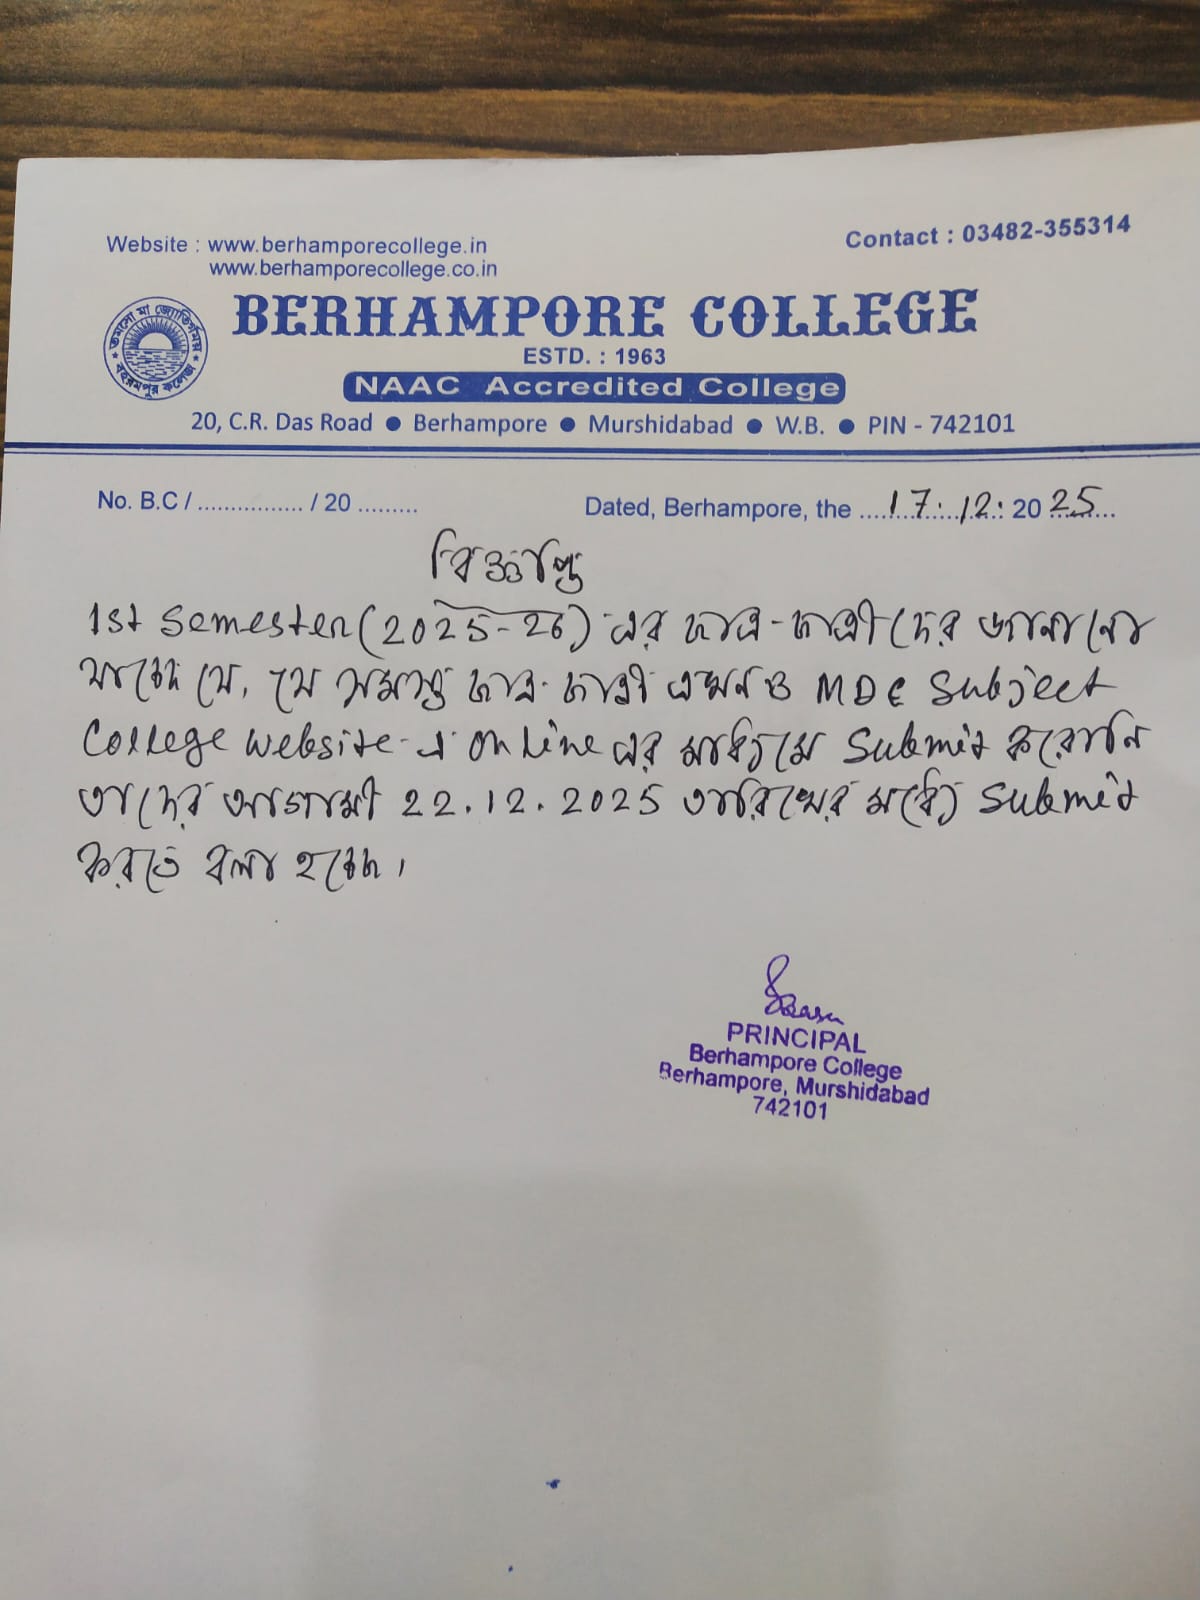 Website : www.berhamporecollege.in
www.berhamporecollege.co.in
Contact : 03482-355314
তমসো মা জ্যোতির্গময়
বহরমপুর কলেজ
BERHAMPORE COLLEGE
ESTD. : 1963
NAAC Accredited College
20, C.R. Das Road ● Berhampore ● Murshidabad ● W.B. ● PIN - 742101
No. B.C / ................ / 20 .........
Dated, Berhampore, the ....17.12.. 20 25...
বিজ্ঞপ্তি
1st Semester (2025-26) এর ছাত্র-ছাত্রীদের জানানো
যাচ্ছে যে, যে সমস্ত ছাত্র-ছাত্রী এখনও MDC Subject
College website-এ online এর মাধ্যমে Submit করোনি
তাদের আগামী 22.12.2025 তারিখের মধ্যে Submit
করতে বলা হচ্ছে।
SBasu
PRINCIPAL
Berhampore College
Berhampore, Murshidabad
742101